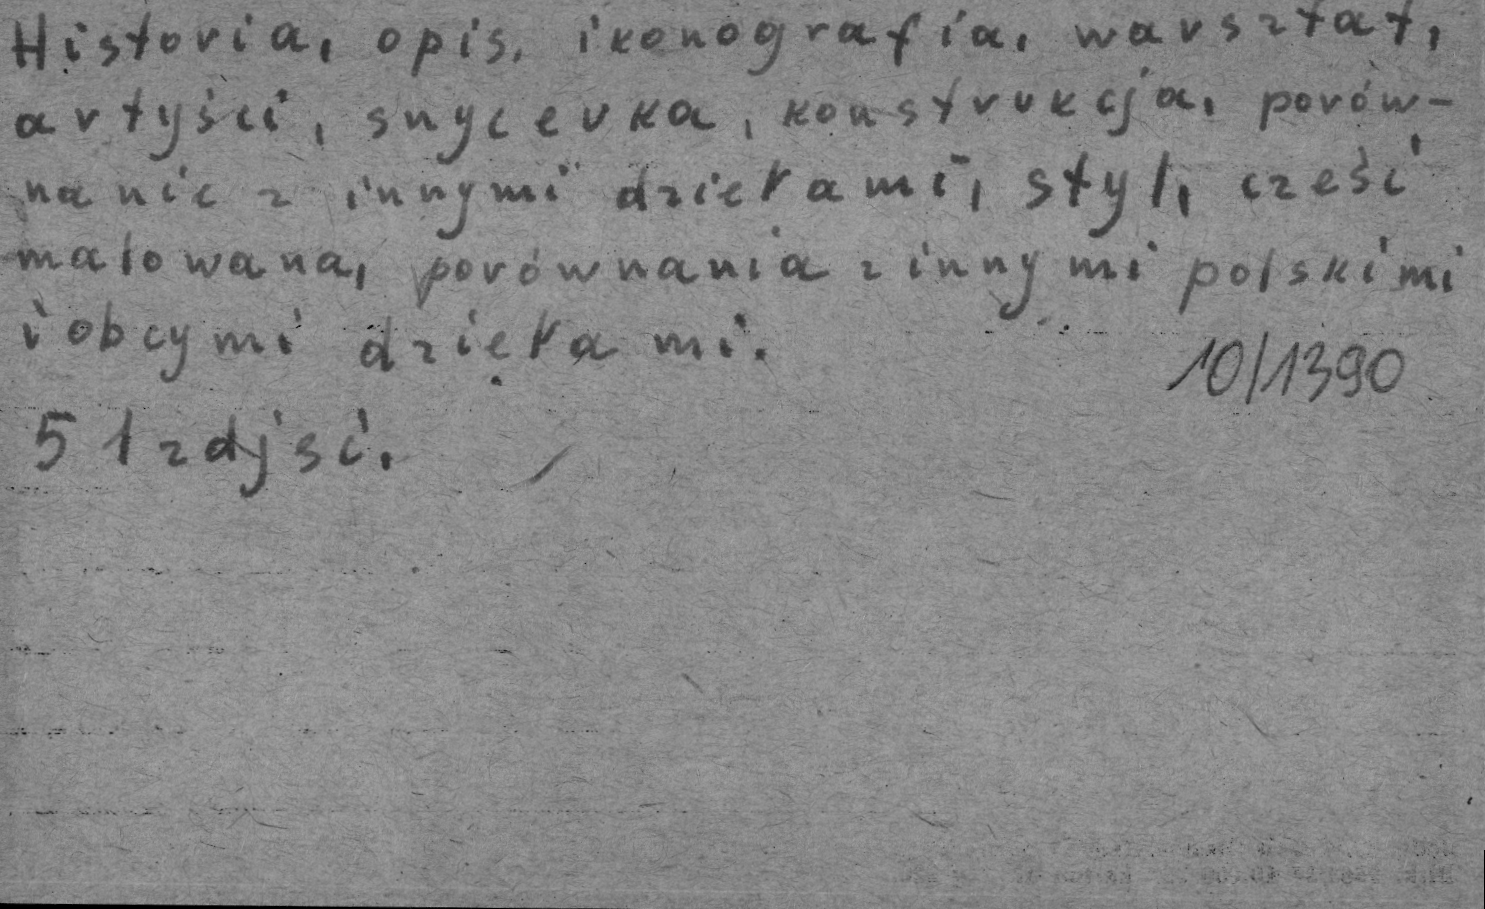 Historia, opis, ikonografia, warsztat,
artyści, snycerka, konstrukcja, porów-
nanie z innymi dziełami, styl, cześć
malowana, porównania z innymi polskimi
i obcymi dziełami.
10/1390
51 zdjść.